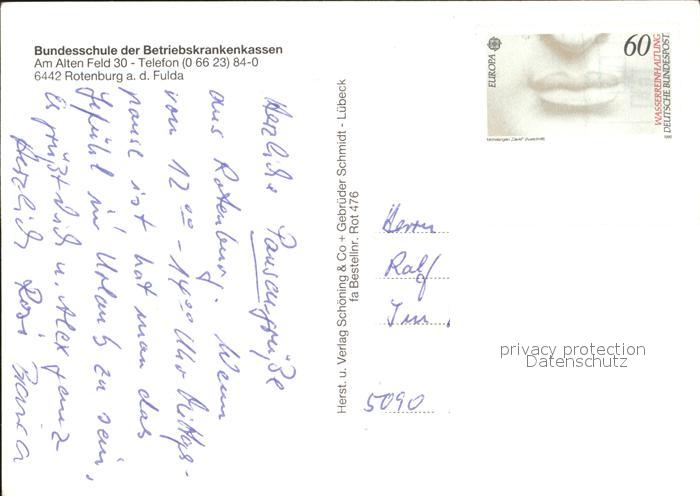 Bundesschule der Betriebskrankenkassen
Am Alten Feld 30 - Telefon (0 66 23) 84-0
6442 Rotenburg a. d. Fulda
Herzliche Pausengrüße
aus Rotenburg. Wenn
von 12 00 - 14 00 Uhr Mittags-
pause ist hat man das
Gefühl im Urlaub zu sein,
Es grüßt Dich u. Alex ganz
Herzlich Rosi
Herst. u. Verlag Schöning & Co + Gebrüder Schmidt - Lübeck
fa Bestellnr. Rot 476
EUROPA
60
WASSERREINHALTUNG
DEUTSCHE BUNDESPOST
Michelangelo „David“ (Ausschnitt)
1986
Herrn
Ralf
Im
5090
privacy protection
Datenschutz